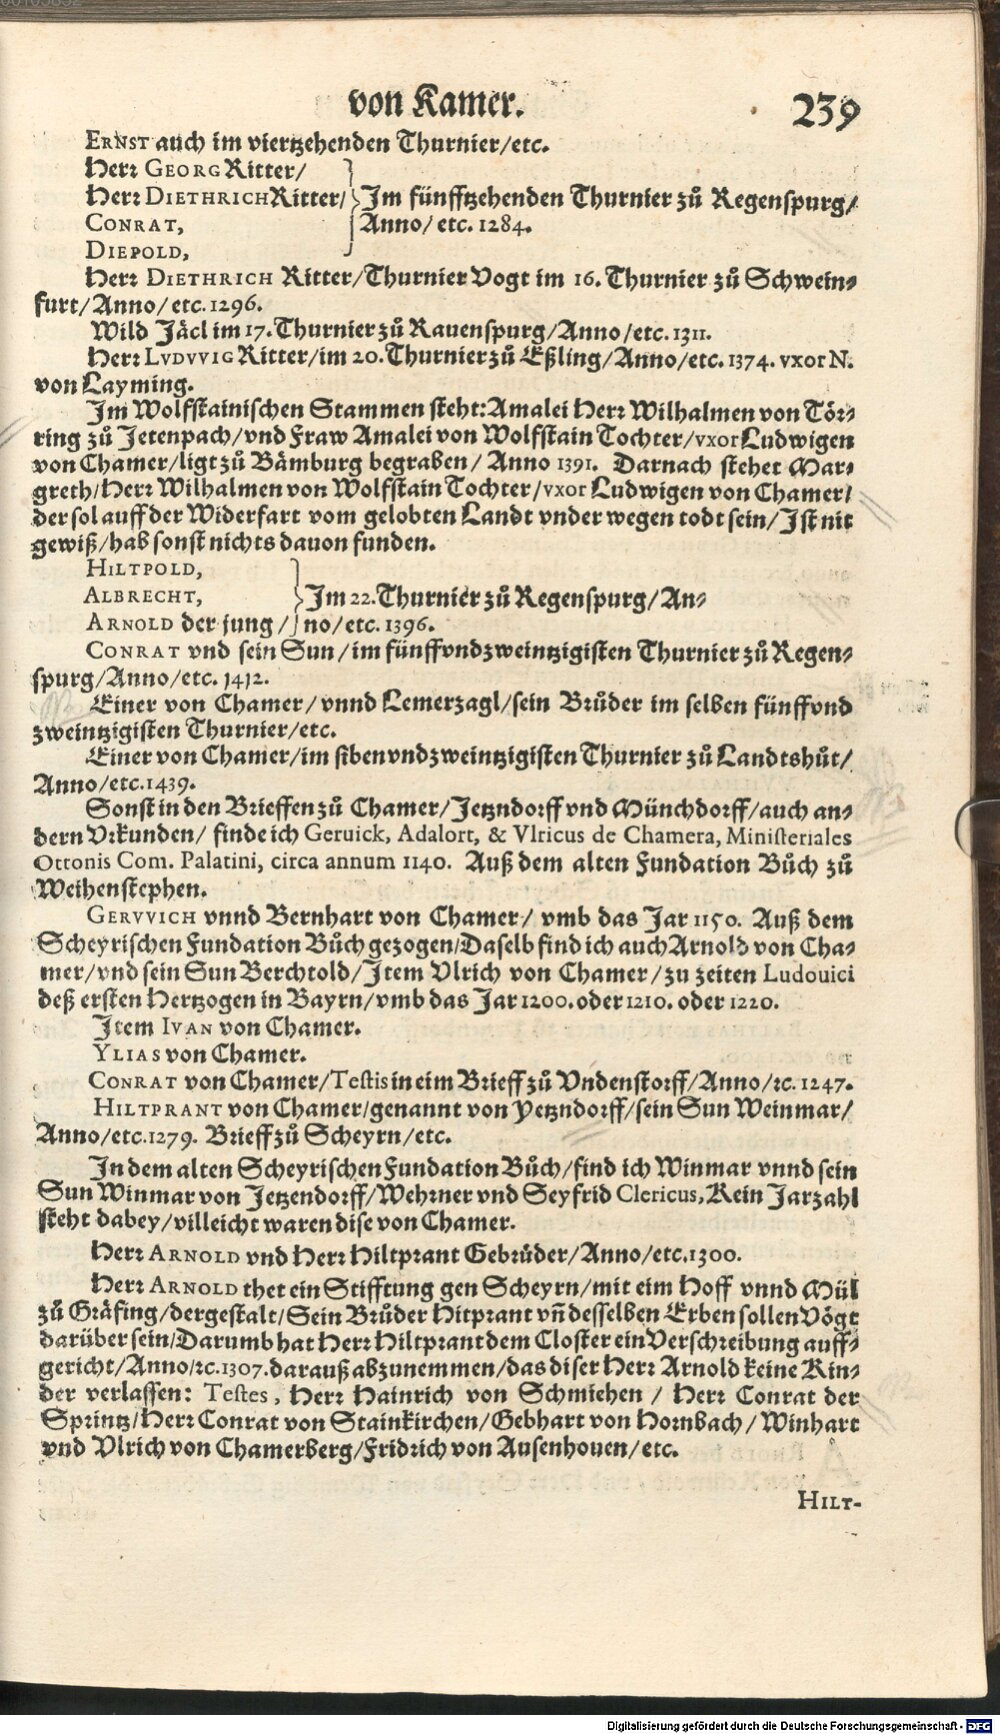 von Kamer. 239
ERNST auch im viertzehenden Thurnier/etc.
Herr GEORG Ritter/
Herr DIETHRICH Ritter/ } Im fünfftzehenden Thurnier zů Regenspurg/
CONRAT, Anno/ etc. 1284.
DIEPOLD,
Herr DIETHRICH Ritter/Thurnier Vogt im 16. Thurnier zů Schwein⸗
furt/Anno/etc. 1296.
Wild Jäcl im 17. Thurnier zů Rauenspurg/Anno/etc. 1311.
Herr LVDVVIG Ritter/im 20. Thurnier zů Eßling/Anno/etc. 1374. vxor N.
von Layming.
Im Wolfstainischen Stammen steht: Amalei Herr Wilhalmen von Tör⸗
ring zů Jetenpach/vnd Fraw Amalei von Wolfstain Tochter/vxor Ludwigen
von Chamer/ligt zů Bämburg begraben/ Anno 1391. Darnach stehet Mar⸗
greth/Herr Wilhalmen von Wolfstain Tochter/vxor Ludwigen von Chamer/
der sol auff der Widerfart vom gelobten Landt vnder wegen todt sein/Ist nit
gewiß/hab sonst nichts dauon funden.
HILTPOLD,
ALBRECHT, } Im 22. Thurnier zů Regenspurg/An⸗
ARNOLD der jung/ no/etc. 1396.
CONRAT vnd sein Sun/im fünffvndzweintzigisten Thurnier zů Regen⸗
spurg/Anno/etc. 1412.
Einer von Chamer/ vnnd Lemerzagl/sein Brůder im selben fünffvnd
zweintzigisten Thurnier/etc.
Einer von Chamer/im sibenvndzweintzigisten Thurnier zů Landtshůt/
Anno/etc. 1439.
Sonst in den Brieffen zů Chamer/Jetzndorff vnd Münchdorff/auch an⸗
dern Vrkunden/ finde ich Geruick, Adalort, & Vlricus de Chamera, Ministeriales
Ottonis Com. Palatini, circa annum 1140. Auß dem alten Fundation Bůch zů
Weihenstephen.
GERVVICH vnnd Bernhart von Chamer/ vmb das Jar 1150. Auß dem
Scheyrischen Fundation Bůch gezogen/Daselb find ich auch Arnold von Cha⸗
mer/vnd sein Sun Berchtold/Item Vlrich von Chamer/zu zeiten Ludouici
deß ersten Hertzogen in Bayrn/vmb das Jar 1200. oder 1210. oder 1220.
Item IVAN von Chamer.
YLIAS von Chamer.
CONRAT von Chamer/Testis in eim Brieff zů Vndenstorff/Anno/ꝛc. 1247.
HILTPRANT von Chamer/genannt von Yetzndorff/sein Sun Weinmar/
Anno/etc. 1279. Brieff zů Scheyrn/etc.
In dem alten Scheyrischen Fundation Bůch/find ich Winmar vnnd sein
Sun Winmar von Jetzendorff/Wehrner vnd Seyfrid Clericus, Kein Jarzahl
steht dabey/villeicht waren dise von Chamer.
Herr ARNOLD vnd Herr Hiltprant Gebrůder/Anno/etc. 1300.
Herr ARNOLD thet ein Stifftung gen Scheyrn/mit eim Hoff vnnd Mül
zů Gräfing/dergestalt/Sein Brůder Hitprant vn̄ desselben Erben sollen Vögt
darüber sein/Darumb hat Herr Hiltprant dem Closter ein Verschreibung auff⸗
gericht/Anno/ꝛc. 1307. darauß abzunemmen/das diser Herr Arnold keine Kin⸗
der verlassen: Testes, Herr Hainrich von Schmiehen / Herr Conrat der
Sprintz/Herr Conrat von Stainkirchen/Gebhart von Hornbach/ Winhart
vnd Vlrich von Chamerberg/Fridrich von Ausenhouen/etc.
HILT-
Digitalisierung gefördert durch die Deutsche Forschungsgemeinschaft - DFG